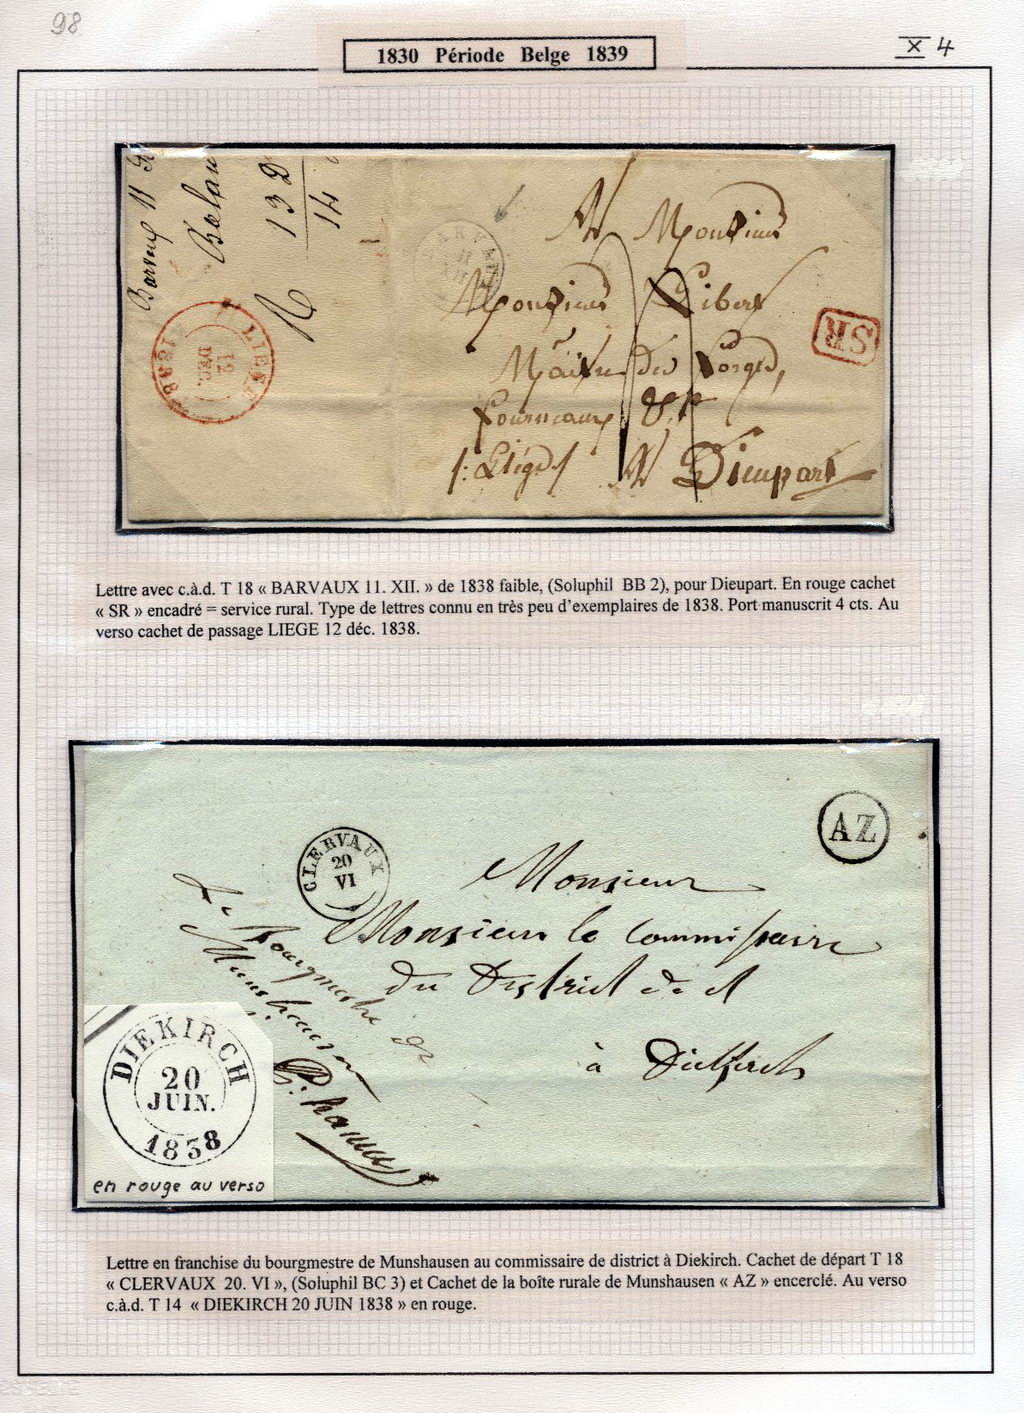 98
X 4
1830 Période Belge 1839
Barvaux 11
13 D
14
LIEGE
12
DEC.
1838
A Monsieur
Monsieur Dibert
Maitre des Forges,
fourneaux &c
/: Liége / A Dieupart
SR
Lettre avec c.à.d. T 18 « BARVAUX 11. XII. » de 1838 faible, (Soluphil BB 2), pour Dieupart. En rouge cachet
« SR » encadré = service rural. Type de lettres connu en très peu d’exemplaires de 1838. Port manuscrit 4 cts. Au
verso cachet de passage LIEGE 12 déc. 1838.
AZ
CLERVAUX
20
VI
Monsieur
Monsieur le Commissaire
du District de et
à Diekirch
Le Bourgmestre de
Munshausen
DIEKIRCH
20
JUIN.
1838
en rouge au verso
Lettre en franchise du bourgmestre de Munshausen au commissaire de district à Diekirch. Cachet de départ T 18
« CLERVAUX 20. VI », (Soluphil BC 3) et Cachet de la boîte rurale de Munshausen « AZ » encerclé. Au verso
c.à.d. T 14 « DIEKIRCH 20 JUIN 1838 » en rouge.